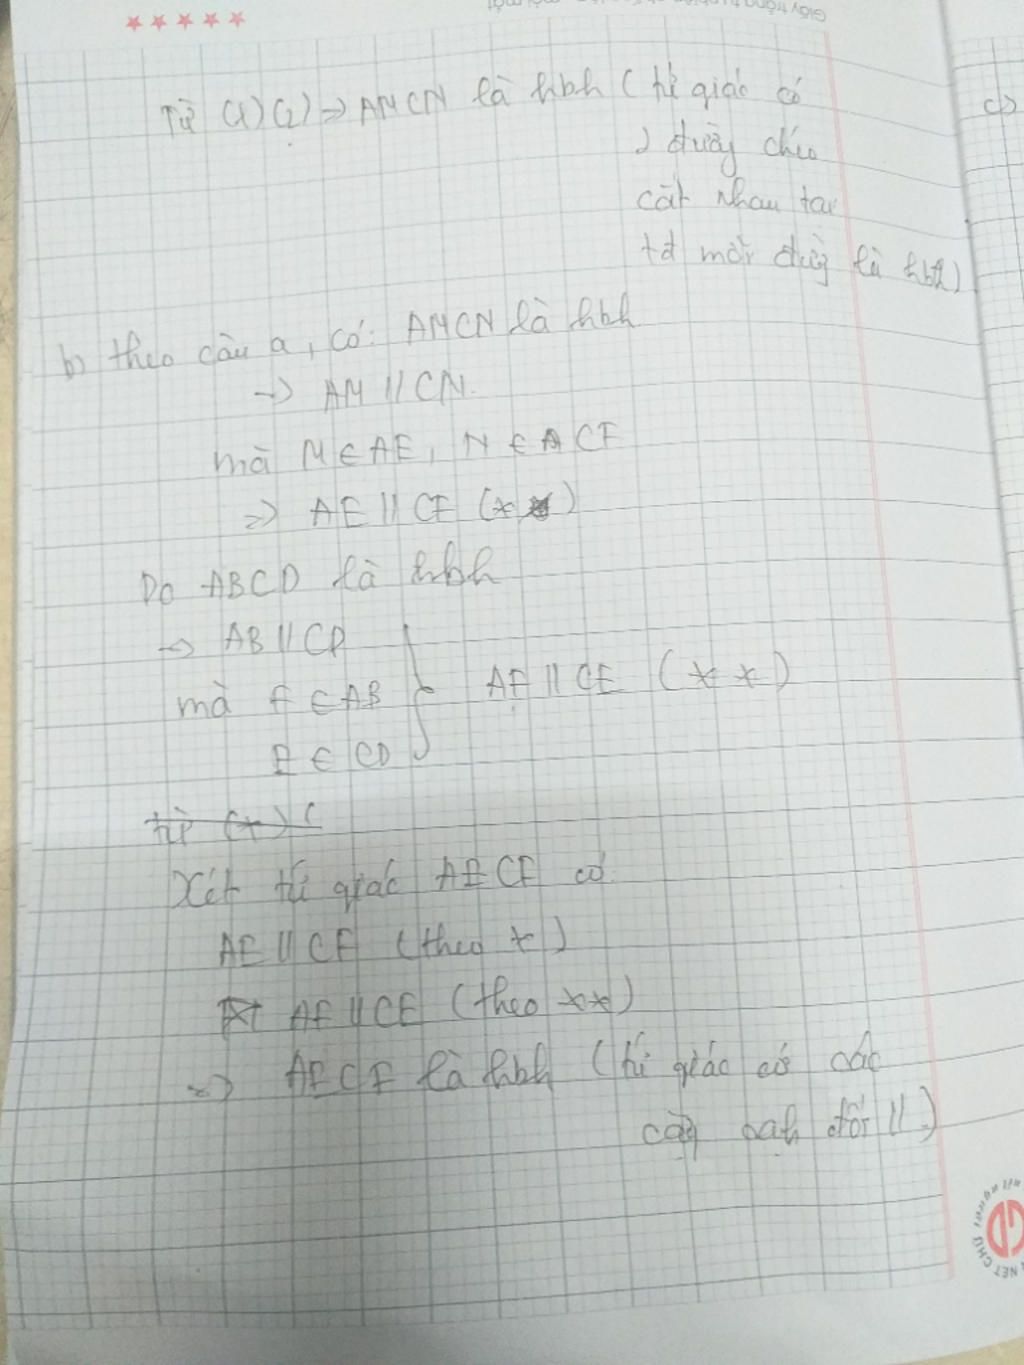 Từ (1)(2) => AMCN là hbh (tứ giác có
2 đường chéo
cắt nhau tại
tđ mỗi đường là hbh)
c)
b) theo câu a, có: AMCN là hbh
-> AM // CN.
mà M ∈ AE, N ∈ CF
=> AE // CF (*)
Do ABCD là hbh
-> AB // CD
mà F ∈ AB
E ∈ CD
AF // CE (**)
từ (*) (
Xét tứ giác AECF có
AE // CF (theo *)
AF // CE (theo **)
=> AECF là hbh (tứ giác có các
cặp cạnh đối //)